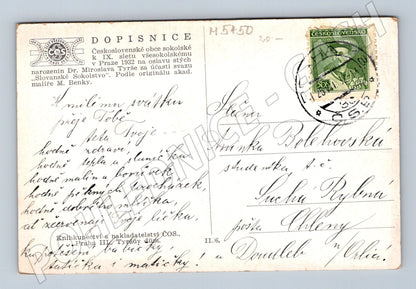 DOPISNICE
Československé obce sokolské
k IX. sletu všesokolskému
v Praze 1932 na oslavu stých
narozenin Dr. Miroslava Tyrše za účasti svazu
„Slovanské Sokolstvo". Podle originálu akad.
malíře M. Benky.
M 5750
20.-
ČESKOSLOVENSKO
K milému svátku
přeje Tobě
teta
hodně zdraví!
hodně tepla a sluníčka
hodně malin a borůvek
hodně pěkných procházek,
hodně dobrého mlíčka,
ať zčervenají tvoje líčka,
Ku potěšení babičky!
tatíčka i matičky!
Knihkupectví a nakladatelství ČOS.,
Praha III., Tyršův dům.
11./6.
Slečna
Bolehovská
studentka
Sucha Rybná
pošta Chleny
u Doudleb n/Orlicí